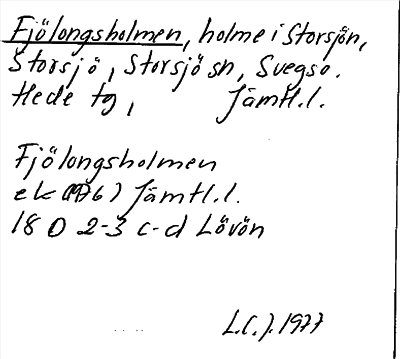 Fjölongsholmen, holme i Storsjön,
Storsjö, Storsjö sn, Svegs o.
Hede tg, Jämtl.l.
Fjölongsholmen
ek (1976) Jämtl.l.
18 D 2-3 c-d Lövön
L.C.J. 1977